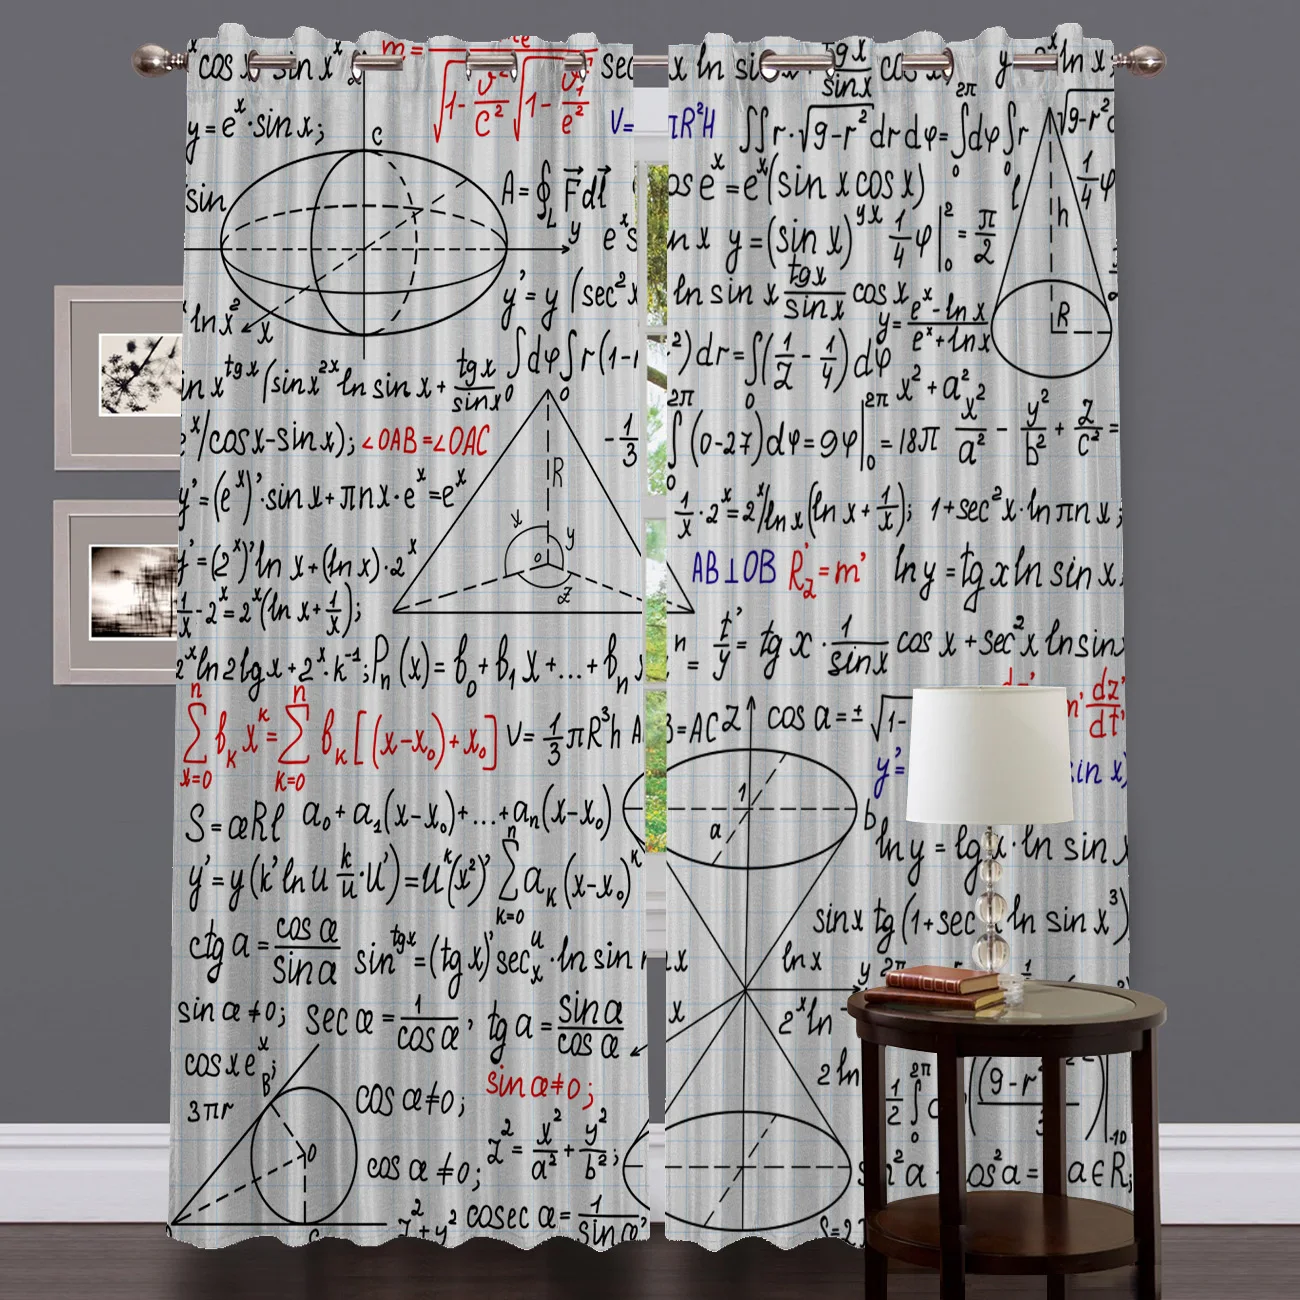 cos x sin x
y=e^x·sin x;
sin
C
A=∮_L F⃗dl⃗
y
e^x s
ln x^2
x
y'=y(sec^2 x
∫dφ∫r(1-r
in x^{tg x}(sin x^{2x} ln sin x+ tg x/sin x
0 0
e^x/cos x-sin x); ∠OAB=∠OAC
-1/3
R
y'=(e^x)'·sin x+πnx·e^x=e^x
x y
o
z
y'=(2^x)'ln x+(ln x)·2^x
1/x-2^x=2^x(ln x+1/x);
2^x ln2lgx+2^x·k^{-1}; P_n(x)=b_0+b_1x+...+b_n
∑_{x=0}^n b_K x^K=∑_{K=0}^n b_K[(x-x_0)+x_0]
V=1/3πR^3h AB=AC
S=æRl a_0+a_1(x-x_0)+...+a_n(x-x_0)
y'=y(k'ln u k/u·u')=u^K(x^2)' ∑_{K=0}^n a_K(x-x_0)^K
ctg a=cos α/sin α sin^{tgx}=(tg x)'sec_x^u·ln sin
sin α≠0; sec α=1/cos α, tg a=sin α/cos α
cos x e^x;
B
3πr
cos α≠0; sin α≠0;
O
cos α≠0; z^2=x^2/a^2+y^2/b^2;
z^2+y^2 cosec α=1/sin α
sec
V=πR^2H
x ln si tg x/sin x cos x
y ln x
∫∫r·√9-r^2 dr dφ=∫_0^{2π}dφ∫_0 r √9-r^2
os e^x=e^x(sin x cos x)
l h 1/4φ
n x y=(sin x)^{yx} 1/4φ|_0^2=π/2
ln sin x tg x/sin x cos x
y=e^x-ln x/e^x+ln x
R
^2)dr=∫_0(1/2-1/4)dφ
x^2+a^2
∫_0^{2π}(0-27)dφ=9φ|_0^{2π}=18π x^2/a^2-y^2/b^2+z/c^2=
1/x·2^x=2^x/ln x(ln x+1/x); 1+sec^2x·ln πnx;
AB⊥OB R_2'=m' ln y=tg x ln sin x
n = t'/y=tg x·1/sin x cos x+sec^2x ln sin x
z cos a=± √1- m' dz'/dt'
y'= sin x)
1
a b
ln y=lg x·ln sin x
sin x tg(1+sec ln sin x^3)
x ln x y
x 2^x ln
2 ln
1/2∫_0^{2π} (9-r^2/3)
sin^2a cos^2a= a∈R;
S=2